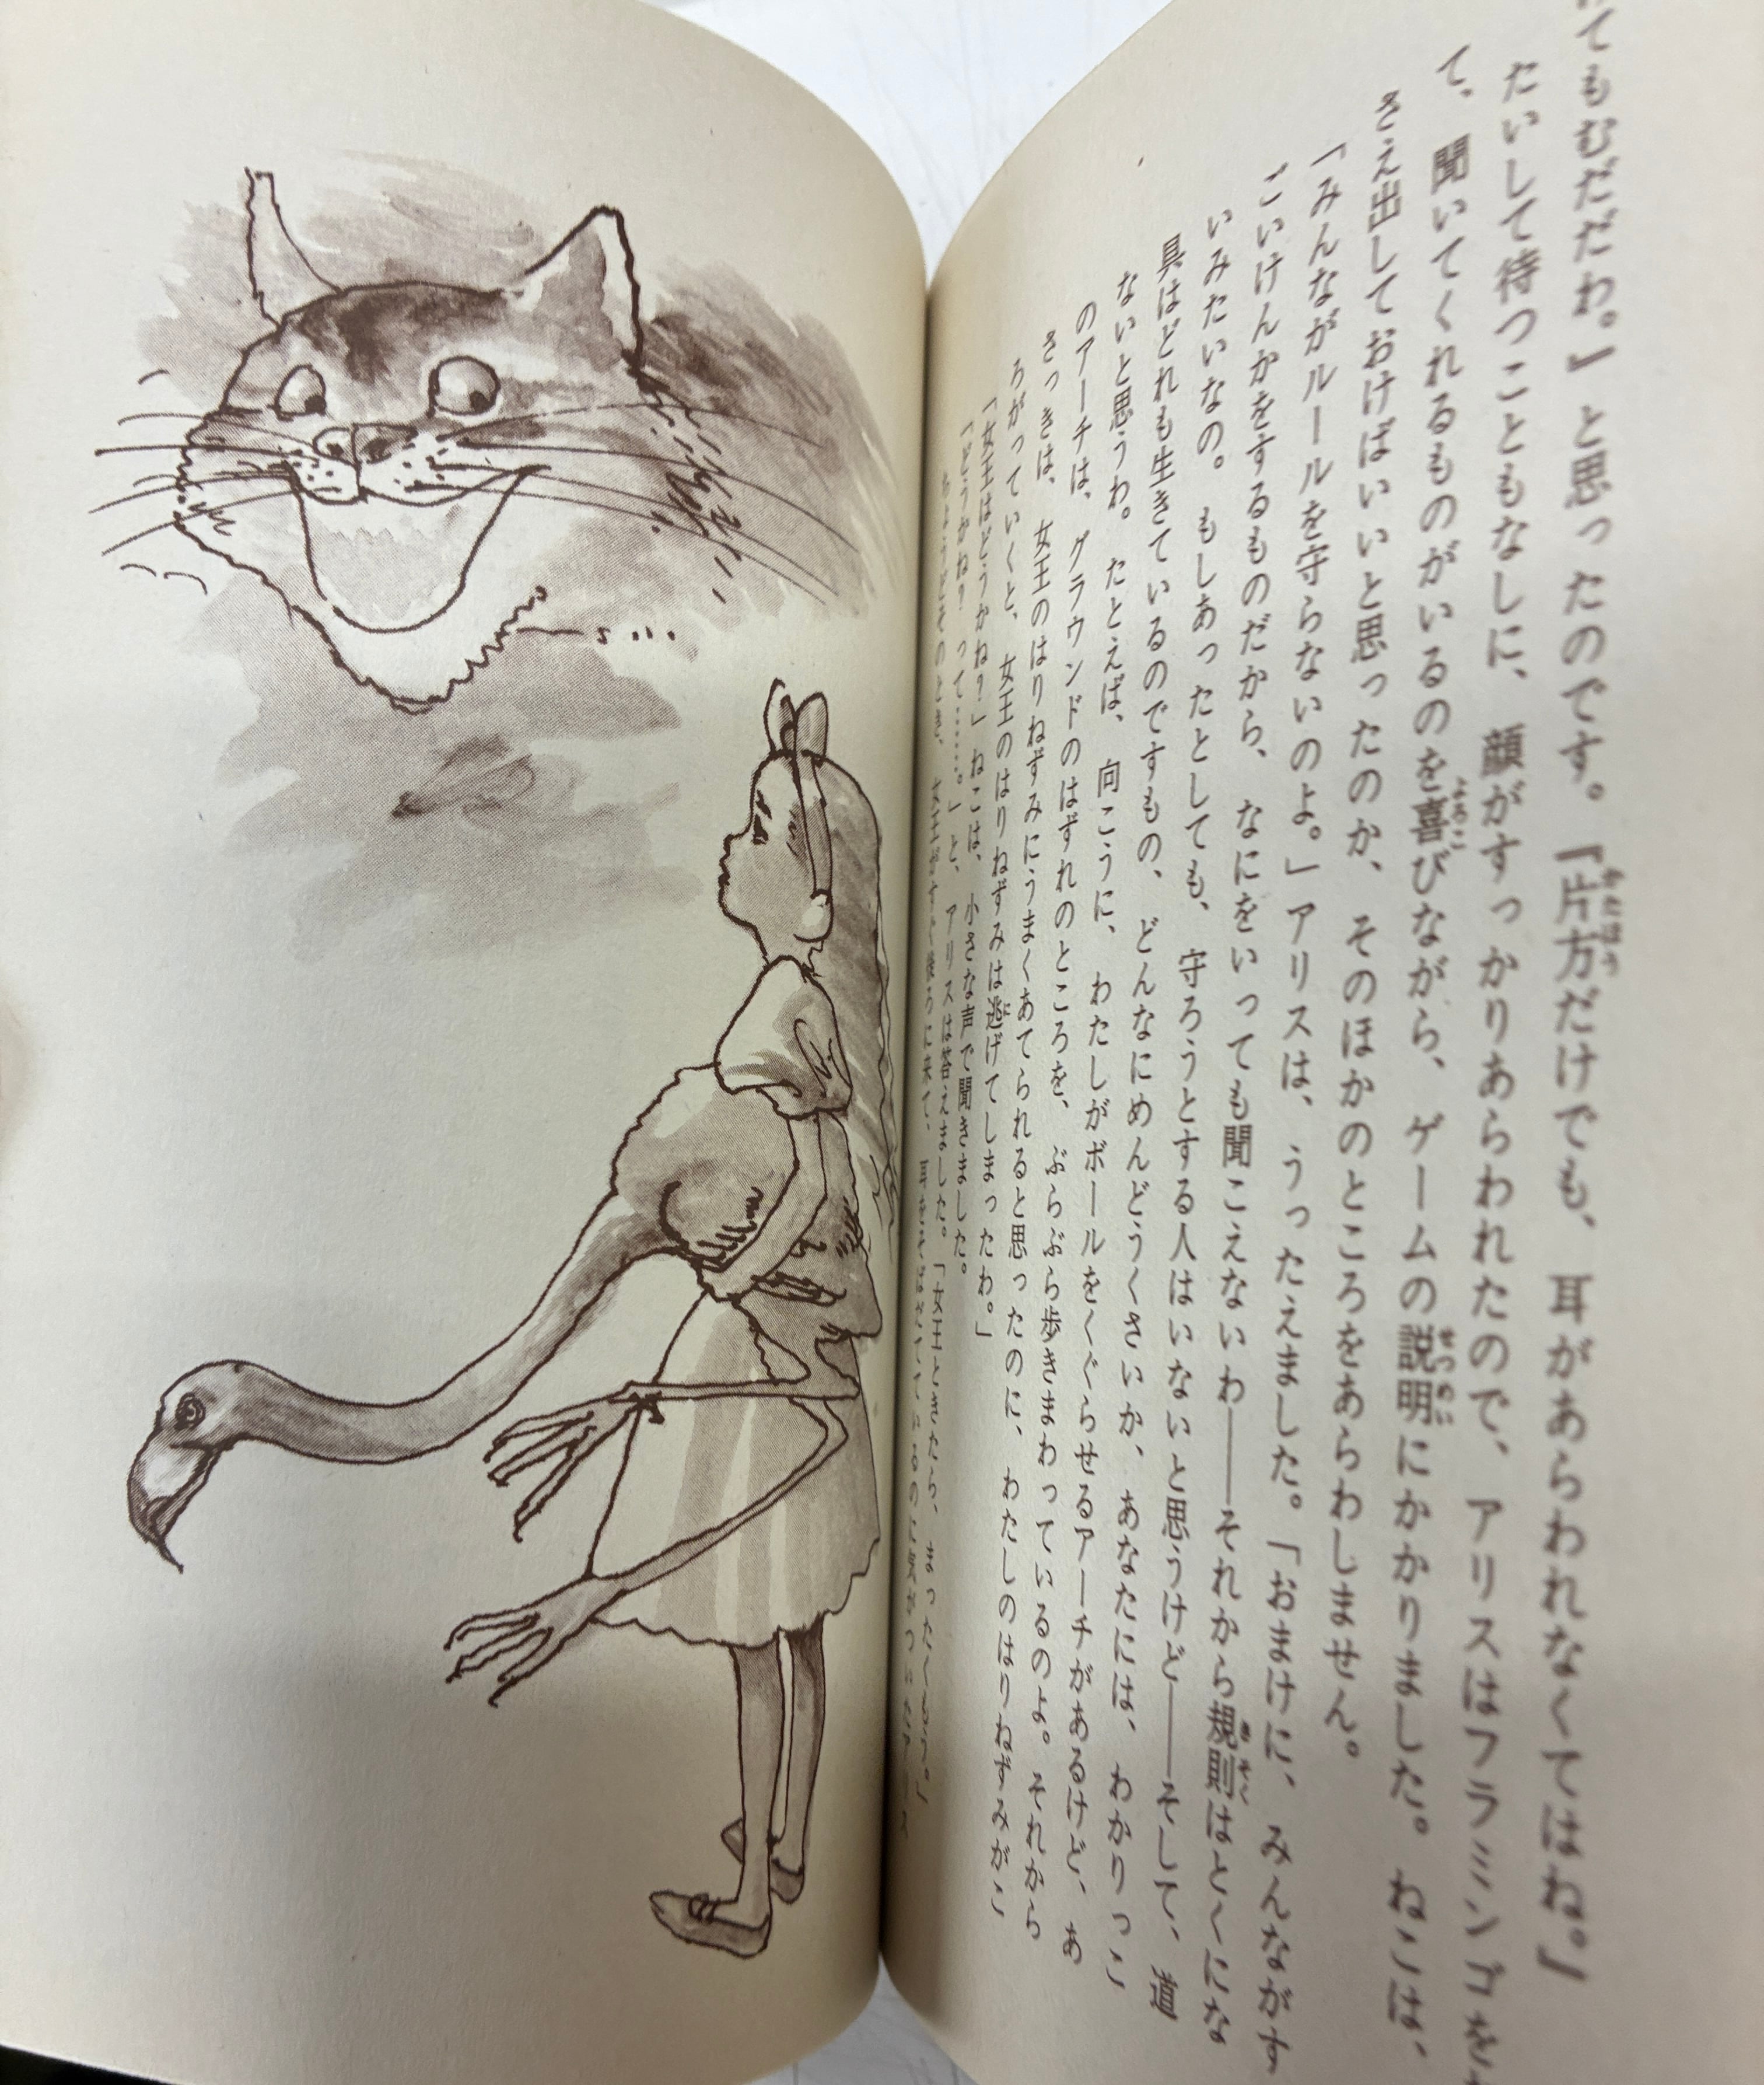 てもむだだわ。』と思ったのです。『片方だけでも、耳があらわれなくてはね。』
たいして待つこともなしに、顔がすっかりあらわれたので、アリスはフラミンゴを
て、聞いてくれるものがいるのを喜びながら、ゲームの説明にかかりました。ねこは、
さえ出しておけばいいと思ったのか、そのほかのところをあらわしません。
「みんながルールを守らないのよ。」アリスは、うったえました。「おまけに、みんながす
ごいけんかをするものだから、なにをいっても聞こえないわ――それから規則はとくにな
いみたいなの。もしあったとしても、守ろうとする人はいないと思うけど――そして、道
具はどれも生きているのですもの、どんなにめんどうくさいか、あなたには、わかりっこ
ないと思うわ。たとえば、向こうに、わたしがボールをくぐらせるアーチがあるけど、あ
のアーチは、グラウンドのはずれのところを、ぶらぶら歩きまわっているのよ。それから
さっきは、女王のはりねずみにうまくあてられると思ったのに、わたしのはりねずみがこ
ろがっていくと、女王のはりねずみは逃げてしまったわ。」
「女王はどうかね？」ねこは、小さな声で聞きました。
「どうかね？って……。」と、アリスは答えました。「女王ときたら、まったく